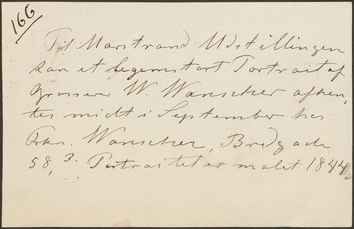 166
Til Marstrand Udstillingen
kan et legemstort Portrait af
Grosserer W. Wanscher afhen,
tes midt i September hos
Frøk. Wanscher, Bredgade
58, 3. Portraitet er malet 1844